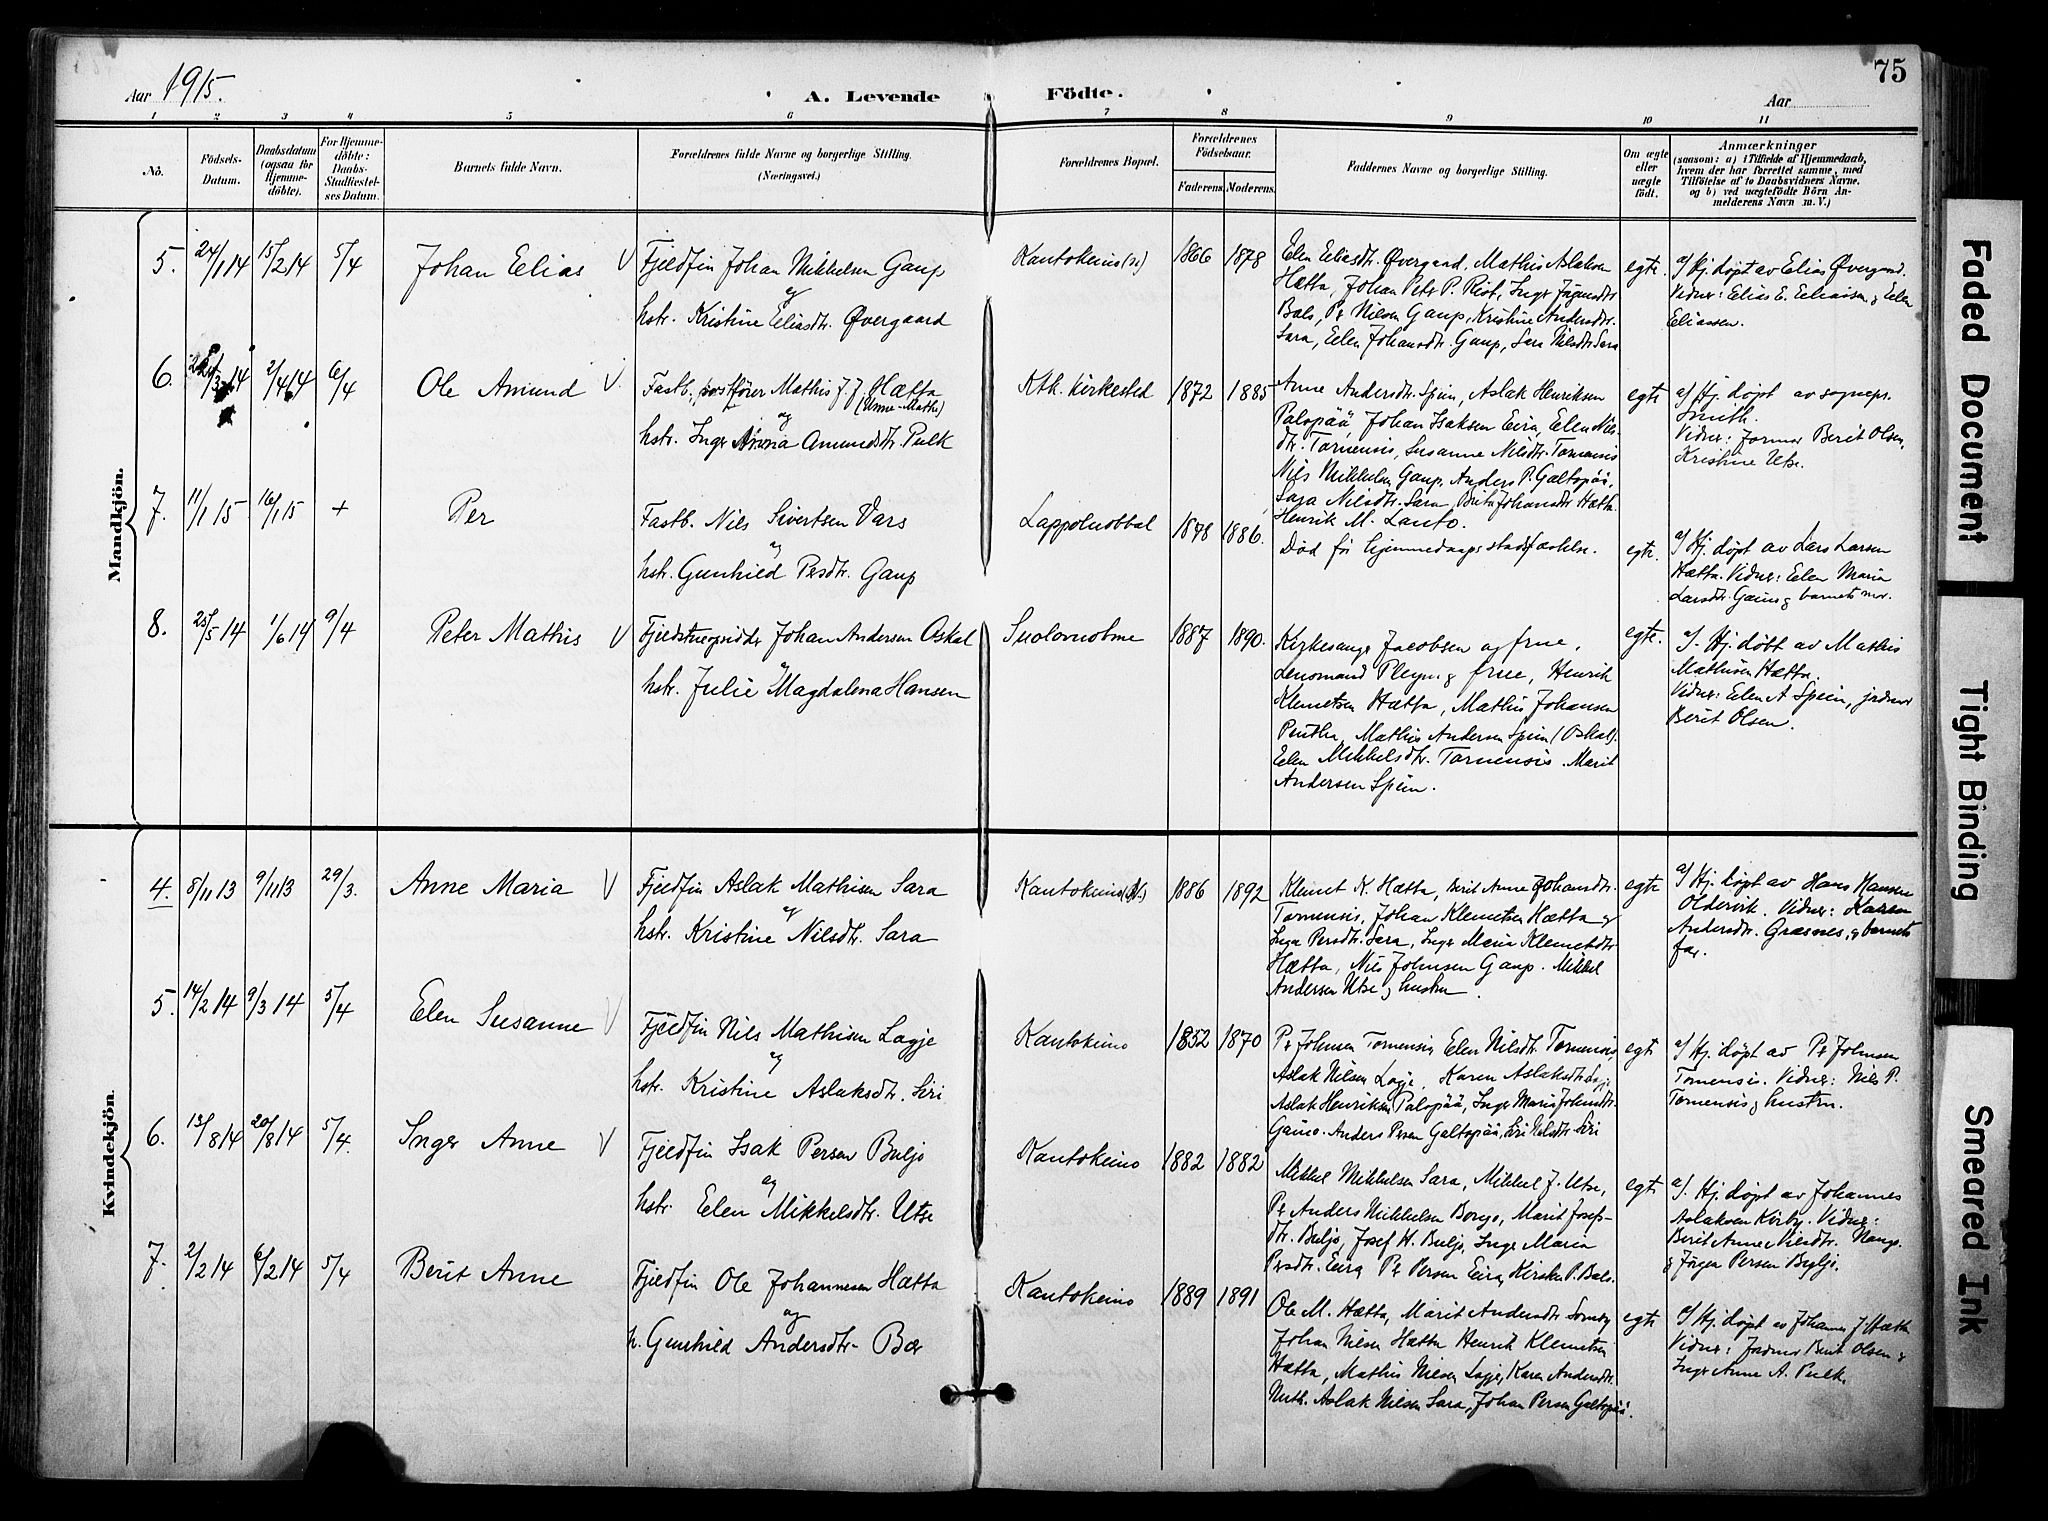 75
Aar 1915.
A. Levende Födte.
Aar
1 2 3 4 5 6 7 8 9 10 11
No.
Födsels-Datum.
Daabsdatum (ogsaa for Hjemme-döbte).
For Hjemme-döbte: Daabs-Stadfæstel-ses Datum.
Barnets fulde Navn.
Forældrenes fulde Navne og borgerlige Stilling. (Næringsvei.)
Forældrenes Bopæl.
Forældrenes Födselsaar.
Faderens. Moderens.
Faddernes Navne og borgerlige Stilling.
Om ægte eller uægte födt.
Anmærkninger
(saasom: a) i Tilfælde af Hjemmedaab,
hvem der har forrettet samme, med
Tilföielse af to Daabsvidners Navne,
og b) ved uægtefödte Börn An-
melderens Navn m. V.)
Mandkjön.
5. 24/1 14 15/2 14 5/4 Johan Elias V
Fjeldfin Johan Mikkelsen Gaup
og
hstr. Kristine Eliasdtr. Øvergaard
Kautokeino (N) 1866 1878
Elen Eliasdtr. Øvergaard, Mathis Aslaksen
Hætta, Johan Peter P. Rist, Inger Jögensdtr
Bals, Pr Nilsen Gaup, Kristine Andersdtr.
Sara, Elen Johansdtr. Gaup, Sara Nilsdtr Sara
egte.
a/ Hj. döpt av Elias Øvergaard.
Vidner: Elias E. Eliassen, & Elen
Eliassen.
6. 14 2/4 14 6/4 Ole Amund V.
Fastb. postförer Mathis J. J. Hætta
og
hstr. Inger Anna Amundsdtr Pulk
Ktk. kirkested 1872 1885
Anne Andersdtr. Spein, Aslak Henriksen
Palopää Johan Isaksen Eira, Elen Nils-
dtr. Tornensis, Susanne Nilsdtr. Tornensis
Nils Mikkelsen Gaup, Anders P. Galtopää,
Sara Nilsdtr. Sara, Berit Johansdtr Hætta.
Henrik M. Lauto.
egte
a/ Hj. döpt av sognepr.
Smith.
Vidner: Jormor Berit Olsen,
Kristine Utse.
7. 11/1 15 16/1 15 + Per
Fastb. Nils Sivertsen Vars
og
hstr. Gunhild Persdtr. Gaup
Lappoluobbal 1878 1886.
Död för hjemmedaaps stadfæstelse.
egte.
a/ Hj. döpt av Lars Larsen
Hætta. Vidner: Elen Maria
Larsdtr. Gaino & barnets mor.
8. 25/5 14 1/6 14 9/4 Peter Mathis V
Fjeldstueopsidder Johan Andersen Oskal
og
hstr. Julie Magdalena Hansen
Suolovuobme 1887 1890.
Kirkesanger Jacobsen og frue,
Lensmand Pleym & frue, Henrik
Klemetsen Hætta, Mathis Johansen
Pentha, Mathis Andersen Spein (Oskal).
Elen Mikkelsdtr. Tornensis. Marit
Andersen Spein.
egte.
a/. Hj. döbt av Mathis
Mathisen Hætta.
Vidner: Elen A Spein, jordmor
Berit Olsen.
Kvindekjön.
4. 8/11 13 9/11 13 29/3. Anne Maria V
Fjeldfin Aslak Mathisen Sara
og
hstr. Kristine Nilsdtr. Sara
Kautokeino (N.) 1886 1892
Klemet K. Hætta, Berit Anne Johansdtr.
Tornensis, Johan Klemetsen Hætta &
Inga Persdtr. Sara, Inger Maria Klemetsdtr
Hætta, Nils Johnsen Gaup. Mikkel
Andersen Utse & hustru.
egte
a/ Hj. döpt av Hans Hansen
Oldervik. Vidner: Karen
Andersdtr. Græsnes, & barnets
far.
5. 14/2 14 9/3 14 5/4 Elen Susanne V
Fjeldfin Nils Mathisen Logje
og
hstr. Kristine Aslaksdtr. Siri
Kautokeino 1852 1870
Pr Johnsen Tornensis, Elen Nilsdtr. Tornensis
Aslak Nilsen Logje. Karen Aslaksdtr. Logje
Aslak Henriksen Palopää, Inger Maria Johnsdtr.
Gaino. Anders Persen Galtopää, Siri Nilsdtr. Siri
egte
a/ Hj. döpt av Pr Johnsen
Tornensis. Vidner: Nils P.
Tornensis & hustru.
6. 13/8 14 20/8 14 5/4. Inger Anne V
Fjeldfin Isak Persen Buljo
og
hstr. Elen Mikkelsdtr. Utse
Kautokeino 1882 1882
Mikkel Mikkelsen Sara, Mikkel J. Utse,
Pr Anders Mikkelsen Bongo, Marit Josefs-
dtr. Buljo, Josef H. Buljo, Inger Maria
Persdtr. Eira, Pr Persen Eira, Kirsten P. Bals.
egte
a/. Hj. döpt av Johannes
Aslaksen Kirby. Vidner:
Berit Anne Nilsdtr.
& Jörgen Persen
7. 2/2 14 6/2 14 5/4 Berit Anne
Fjeldfin Ole Johannesen Hætta
og
h. Gunhild Andersdtr. Bær
Kautokeino 1889 1891
Ole M. Hætta, Marit Andersdtr Somby
Johan Nilsen Hætta Henrik Klemetsen
Hætta, Mathis Nilsen Logje, Karen Andersdtr.
Aslak Nilsen Sara, Johan Persen Galtopää.
egte
a/ Hj. döpt av Johannes J. Hætta
Vidner: Jordmor Berit Olsen &
Inger Anne A. Pulk.
Faded Document
Tight Binding
Smeared Ink